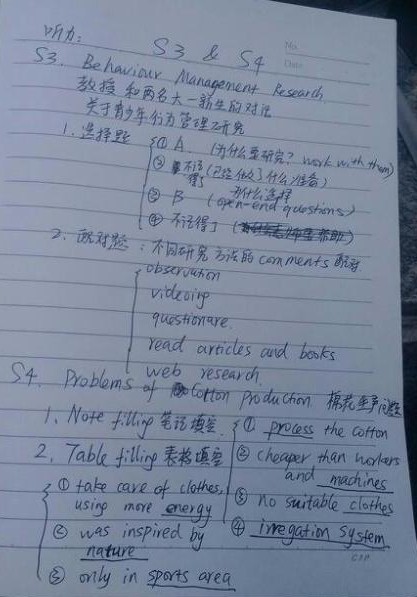 听力:
S3 & S4
No.
Date
S3. Behaviour Management Research
教授和两名大一新生的对话
关于青少年行为管理研究
1. 选择题
① A (为什么要研究? work with them)
② 不记得了 (已经做了什么准备)
③ B 为什么选择 (open-end questions)
④ 不记得了
2. 配对题: 不同研究方法的 comments 配对
observation
videoing
questionare.
read articles and books
web research.
S4. Problems of Cotton Production 棉花生产问题
1. Note filling 笔记填空
① process the cotton
② cheaper than workers and machines
③ no suitable clothes
④ irregation system
2. Table filling 表格填空
① take care of clothes, using more energy
② was inspired by nature
③ only in sports area